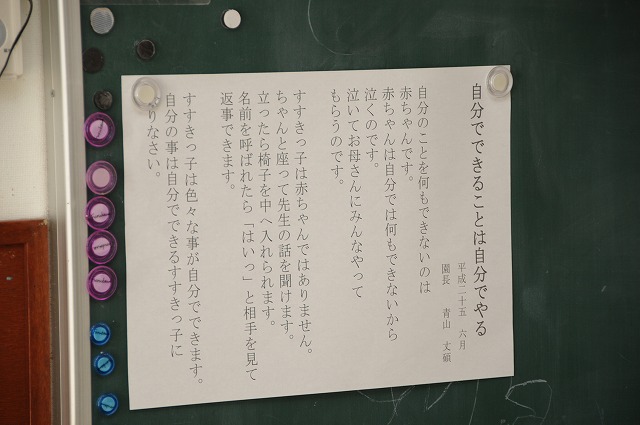 自分でできることは自分でやる
平成二十五 六月
園長 青山 丈碩
自分のことを何もできないのは
赤ちゃんです。
赤ちゃんは自分では何もできないから
泣くのです。
泣いてお母さんにみんなやって
もらうのです。
すすきっ子は赤ちゃんではありません。
ちゃんと座って先生の話を聞けます。
立ったら椅子を中へ入れられます。
名前を呼ばれたら「はいっ」と相手を見て
返事できます。
すすきっ子は色々な事が自分でできます。
自分の事は自分でできるすすきっ子に
りなさい。